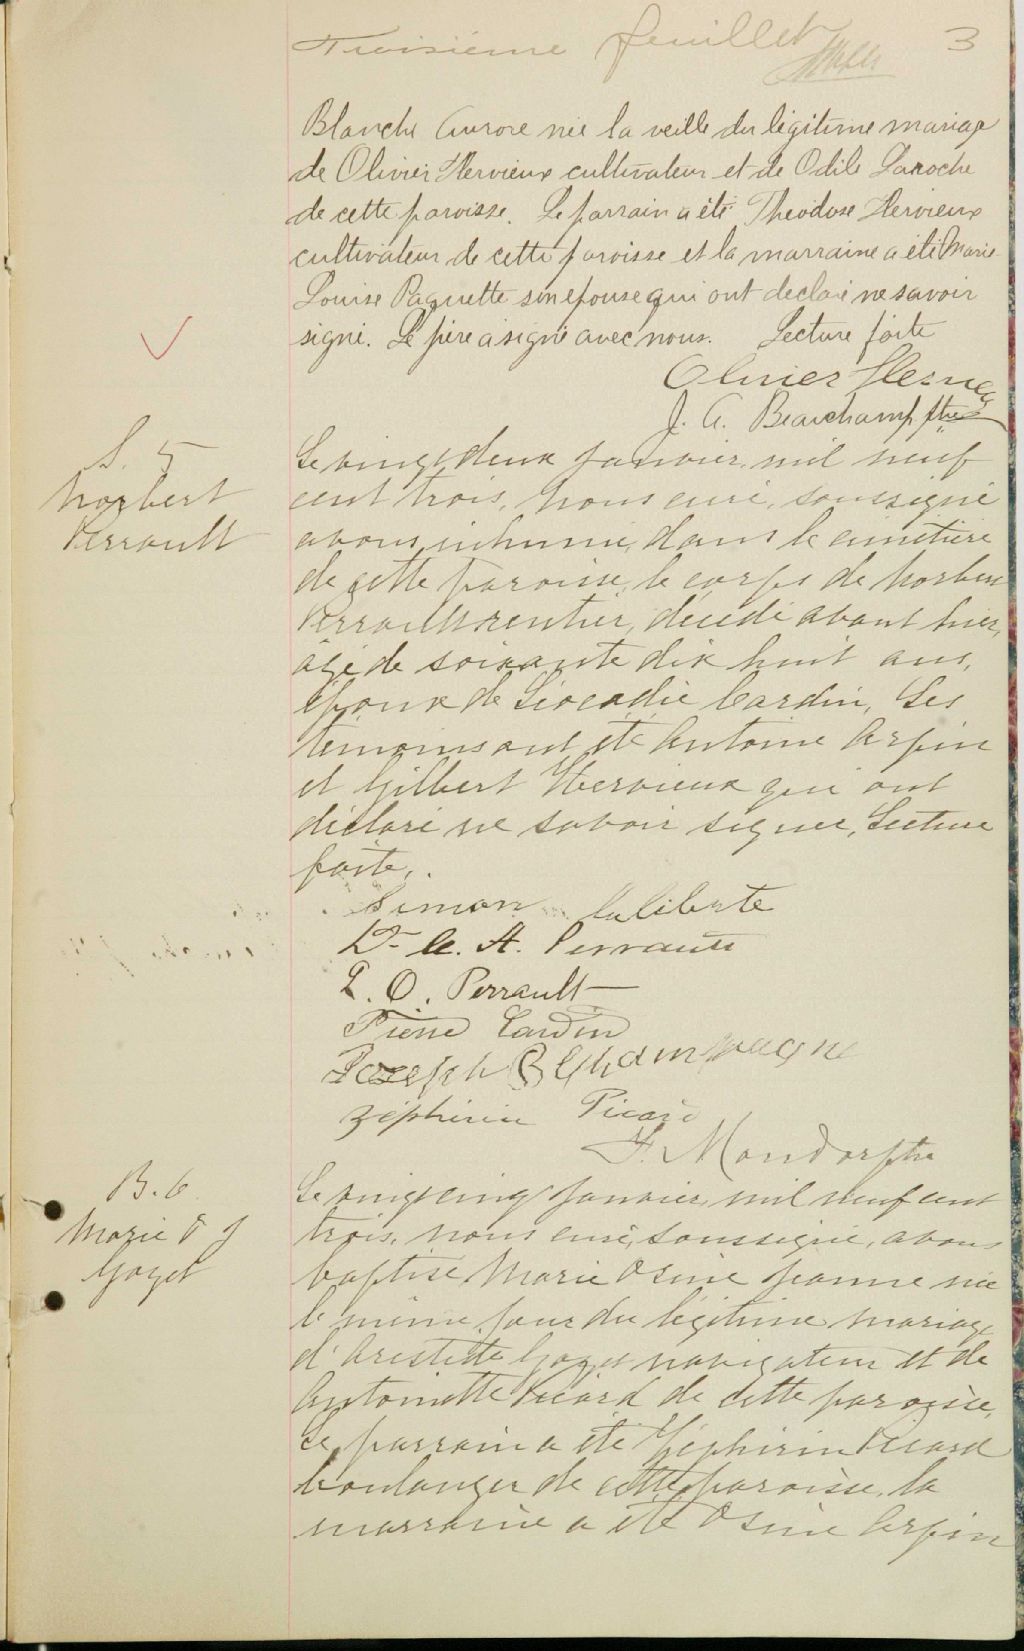 Troisième feuillet 3
Blanche Aurore née la veille du légitime mariage
de Olivier Hervieux cultivateur et de Odile Laroche
de cette paroisse. Le parrain a été Theodose Hervieux
cultivateur de cette paroisse et la marraine a été Marie
Louise Paquette son epouse qui ont declaré ne savoir
signé. Le père a signé avec nous. Lecture faite
Olivier Hervieux
J. A. Beauchamp ptre
S. 5
Norbert
Perrault
Le vingt deux janvier mil neuf
cent trois, nous curé, soussigné
avons inhumé, dans le cimetière
de cette paroisse, le corps de Norbert
Perrault rentier, décédé avant hier,
âgé de soixante dix huit ans,
époux de Léocadie Cardin, Les
témoins ont été Antoine Arpin
et Gilbert Hervieux qui ont
déclaré ne savoir signer, Lecture
faite,.
Simon Laliberte
Dr A. Perrault
L. O. Perrault
Pierre Cardin
Joseph B Champagne
Zéphirin Picard
F. Mondor ptre
B. 6
Marie O J
Gazet
Le vingt cinq Janvier, mil neuf cent
trois, nous curé, soussigné, avons
baptisé Marie Osine Jeanne née
le même jour du légitime mariage
d'Aristide navigateur et de
Antoinette Picard de cette paroisse,
Le parrain a été Zéphirin Picard
boulanger de cette paroisse, la
marraine a été Osine Arpin